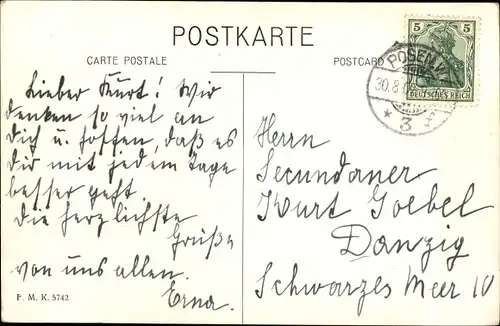 POSTKARTE
CARTE POSTALE
POSTCARD
5 5
DEUTSCHES REICH
POSEN
30.8
* 3
Lieber Kurt! Wir
denken so viel an
Dich u. hoffen, daß es
Dir mit jedem Tage
besser geht.
Die herzlichste
Grüße
von uns allen.
Erna.
Herrn
Secundaner
Kurt Goebel
Danzig
Schwarzes Meer 10
P. M. K. 5742